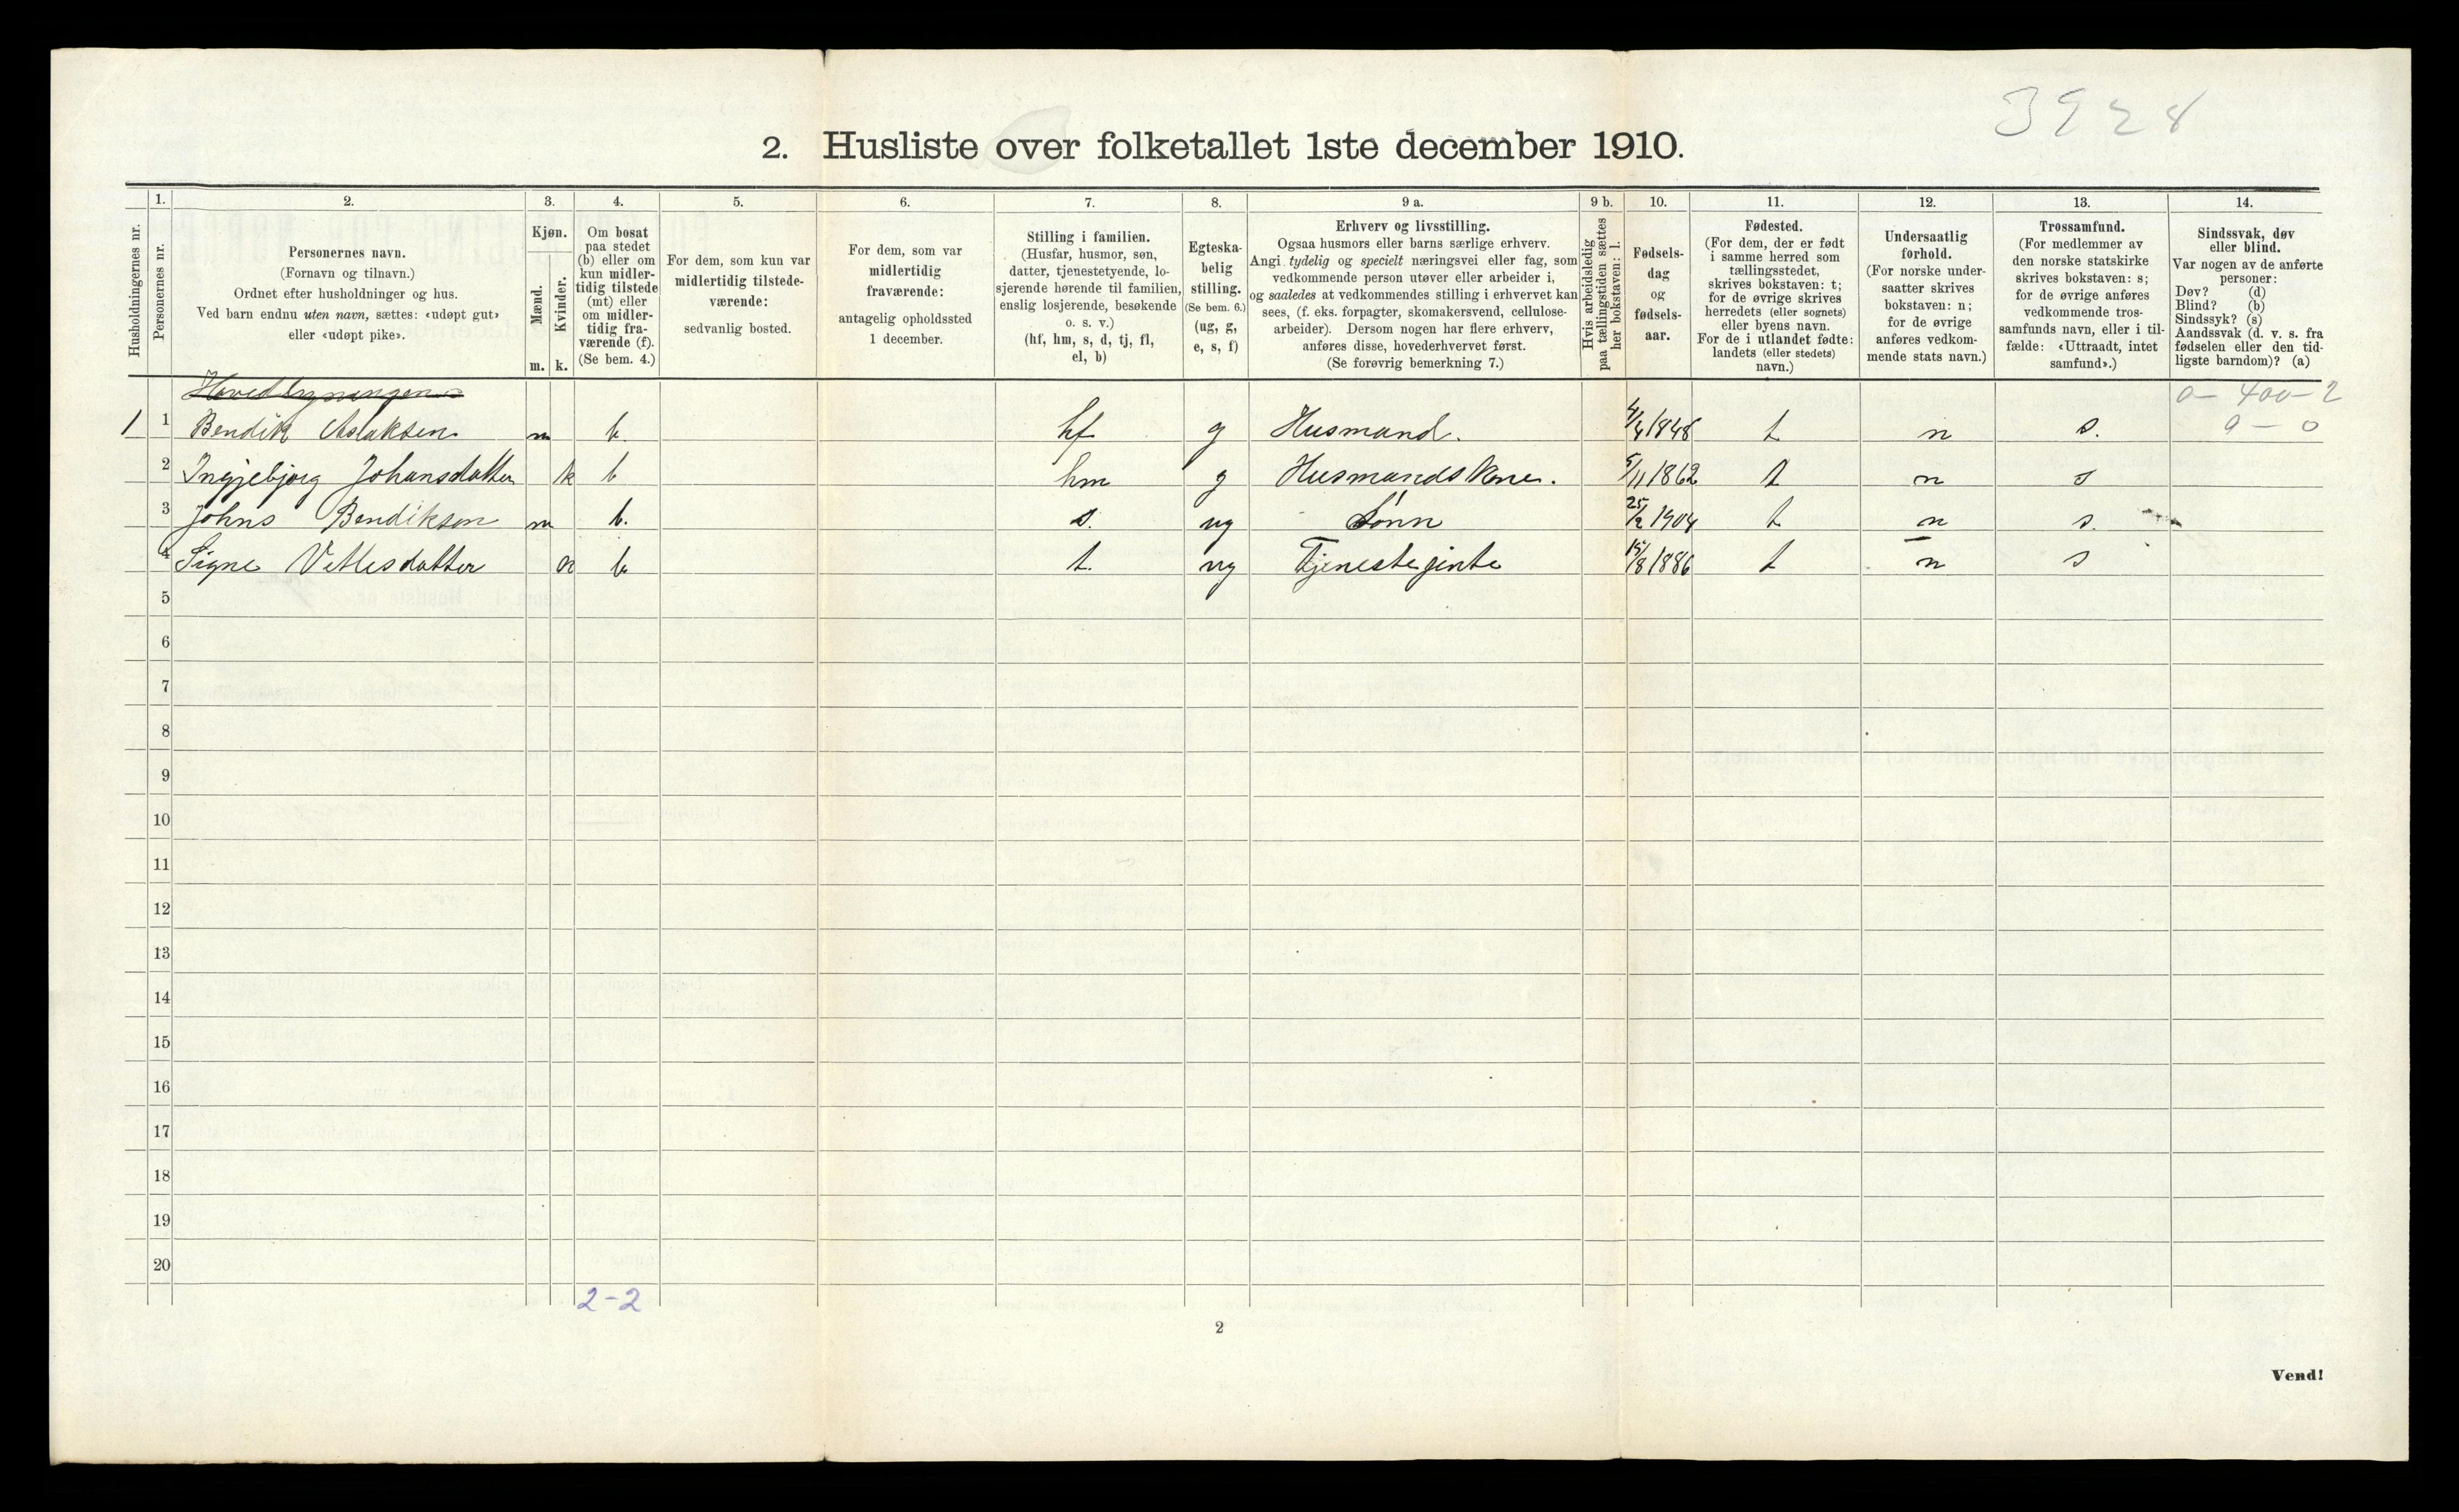 3928
2. Husliste over folketallet 1ste december 1910.
Husholdningernes nr.
1.
Personernes nr.
2.
Personernes navn.
(Fornavn og tilnavn.)
Ordnet efter husholdninger og hus.
Ved barn endnu uten navn, sættes: «udøpt gut»
eller «udøpt pike».
3.
Kjøn.
Mænd.
Kvinder.
m. k.
4.
Om bosat
paa stedet
(b) eller om
kun midler-
tidig tilstede
(mt) eller
om midler-
tidig fra-
værende (f).
(Se bem. 4.)
5.
For dem, som kun var
midlertidig tilstede-
værende:
sedvanlig bosted.
6.
For dem, som var
midlertidig
fraværende:
antagelig opholdssted
1 december.
7.
Stilling i familien.
(Husfar, husmor, søn,
datter, tjenestetyende, lo-
sjerende hørende til familien,
enslig losjerende, besøkende
o. s. v.)
(hf, hm, s, d, tj, fl,
el, b)
8.
Egteska-
belig
stilling.
(Se bem. 6.)
(ug, g,
e, s, f)
9 a.
Erhverv og livsstilling.
Ogsaa husmors eller barns særlige erhverv.
Angi tydelig og specielt næringsvei eller fag, som
vedkommende person utøver eller arbeider i,
og saaledes at vedkommendes stilling i erhvervet kan
sees, (f. eks. forpagter, skomakersvend, cellulose-
arbeider). Dersom nogen har flere erhverv,
anføres disse, hovederhvervet først.
(Se forøvrig bemerkning 7.)
9 b.
Hvis arbeidsledig
paa tællingstiden sættes
her bokstaven: l.
10.
Fødsels-
dag
og
fødsels-
aar.
11.
Fødested.
(For dem, der er født
i samme herred som
tællingsstedet,
skrives bokstaven: t;
for de øvrige skrives
herredets (eller sognets)
eller byens navn.
For de i utlandet fødte:
landets (eller stedets)
navn.)
12.
Undersaatlig
forhold.
(For norske under-
saatter skrives
bokstaven: n;
for de øvrige
anføres vedkom-
mende stats navn.)
13.
Trossamfund.
(For medlemmer av
den norske statskirke
skrives bokstaven: s;
for de øvrige anføres
vedkommende tros-
samfunds navn, eller i til-
fælde: «Uttraadt, intet
samfund».)
14.
Sindssvak, døv
eller blind.
Var nogen av de anførte
personer:
Døv? (d)
Blind? (b)
Sindssyk? (s)
Aandssvak (d. v. s. fra
fødselen eller den tid-
ligste barndom)? (a)
Hovedbygningen
0 - 400 - 2
1 1 Bendik Aslaksen m b. hf g Husmand. 4/4 1848 t n s. 0 - 0
2 Ingjebjorg Johansdatter k b hm g Husmandskone. 5/11 1862 t n s
3 Johns Bendiksen m b. s. ug Sønn 25/2 1904 t n s.
4 Signe Vetlesdatter k b t. ug Tjenestejente 15/8 1886 t n s
5
6
7
8
9
10
11
12
13
14
15
16
17
18
19
20
2-2
2
Vend!